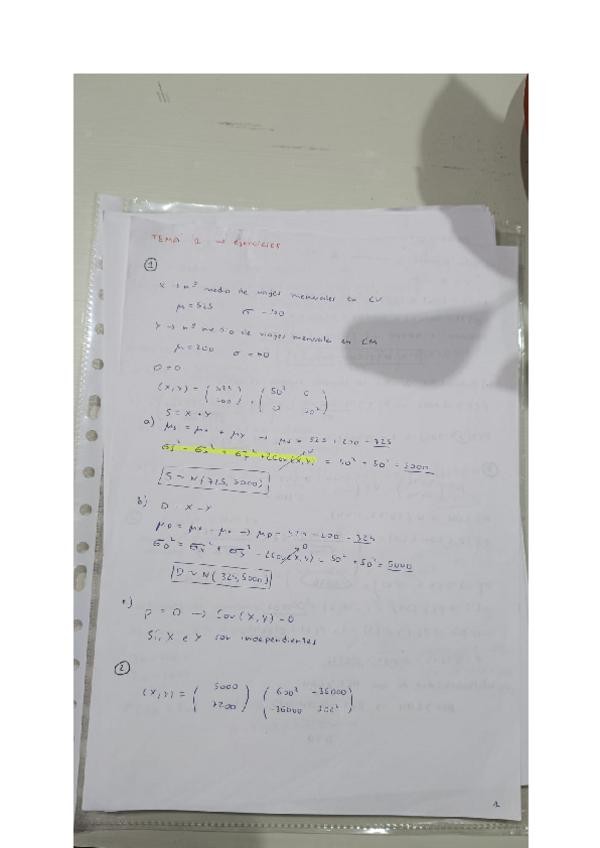 TEMA 1 → ejercicios
①
X → nº medio de viajes mensuales en CV
μ = 525 σ =
Y → nº medio de viajes mensuales en CM
μ = 200 σ =
(X,Y) = 50² 0
0
S = X + Y
a) μs = μx + μy → μs = 525 + 200 = 725
σs² = σx² + σy² + 2Cov(X,Y) = 50² + 50² = 5000
S ~ N(725, 5000)
b) D = X - Y
μD = μx - μy → μD = - 200 = 325
σD² = σx² + σy² - 2Cov(X,Y) = 50² + 50² = 5000
0
D ~ N(325, 5000)
ρ = 0 → Cov(X,Y) = 0
Sí, X e Y son independientes
②
(X,Y) = ( 5000 ) ( 600² -36000 )
-36000
1